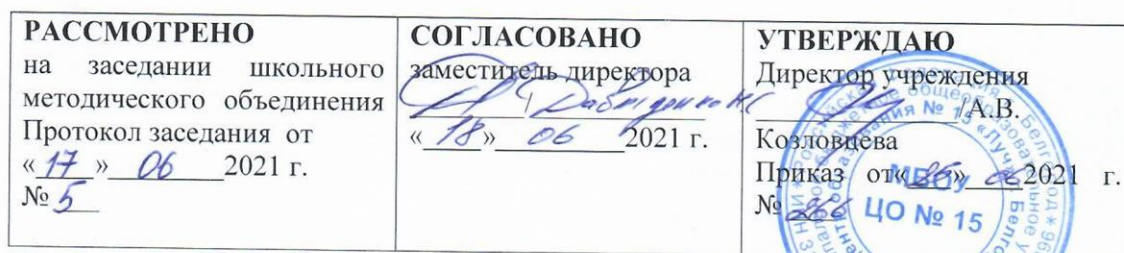 РАССМОТРЕНО
на заседании школьного
методического объединения
Протокол заседания от
«17» 06 2021 г.
№ 5
СОГЛАСОВАНО
заместитель директора
«18» 06 2021 г.
УТВЕРЖДАЮ
Директор учреждения
/А.В.
Козловцева
Приказ от« » 06 2021 г.
№ 266
МБОУ
ЦО № 15